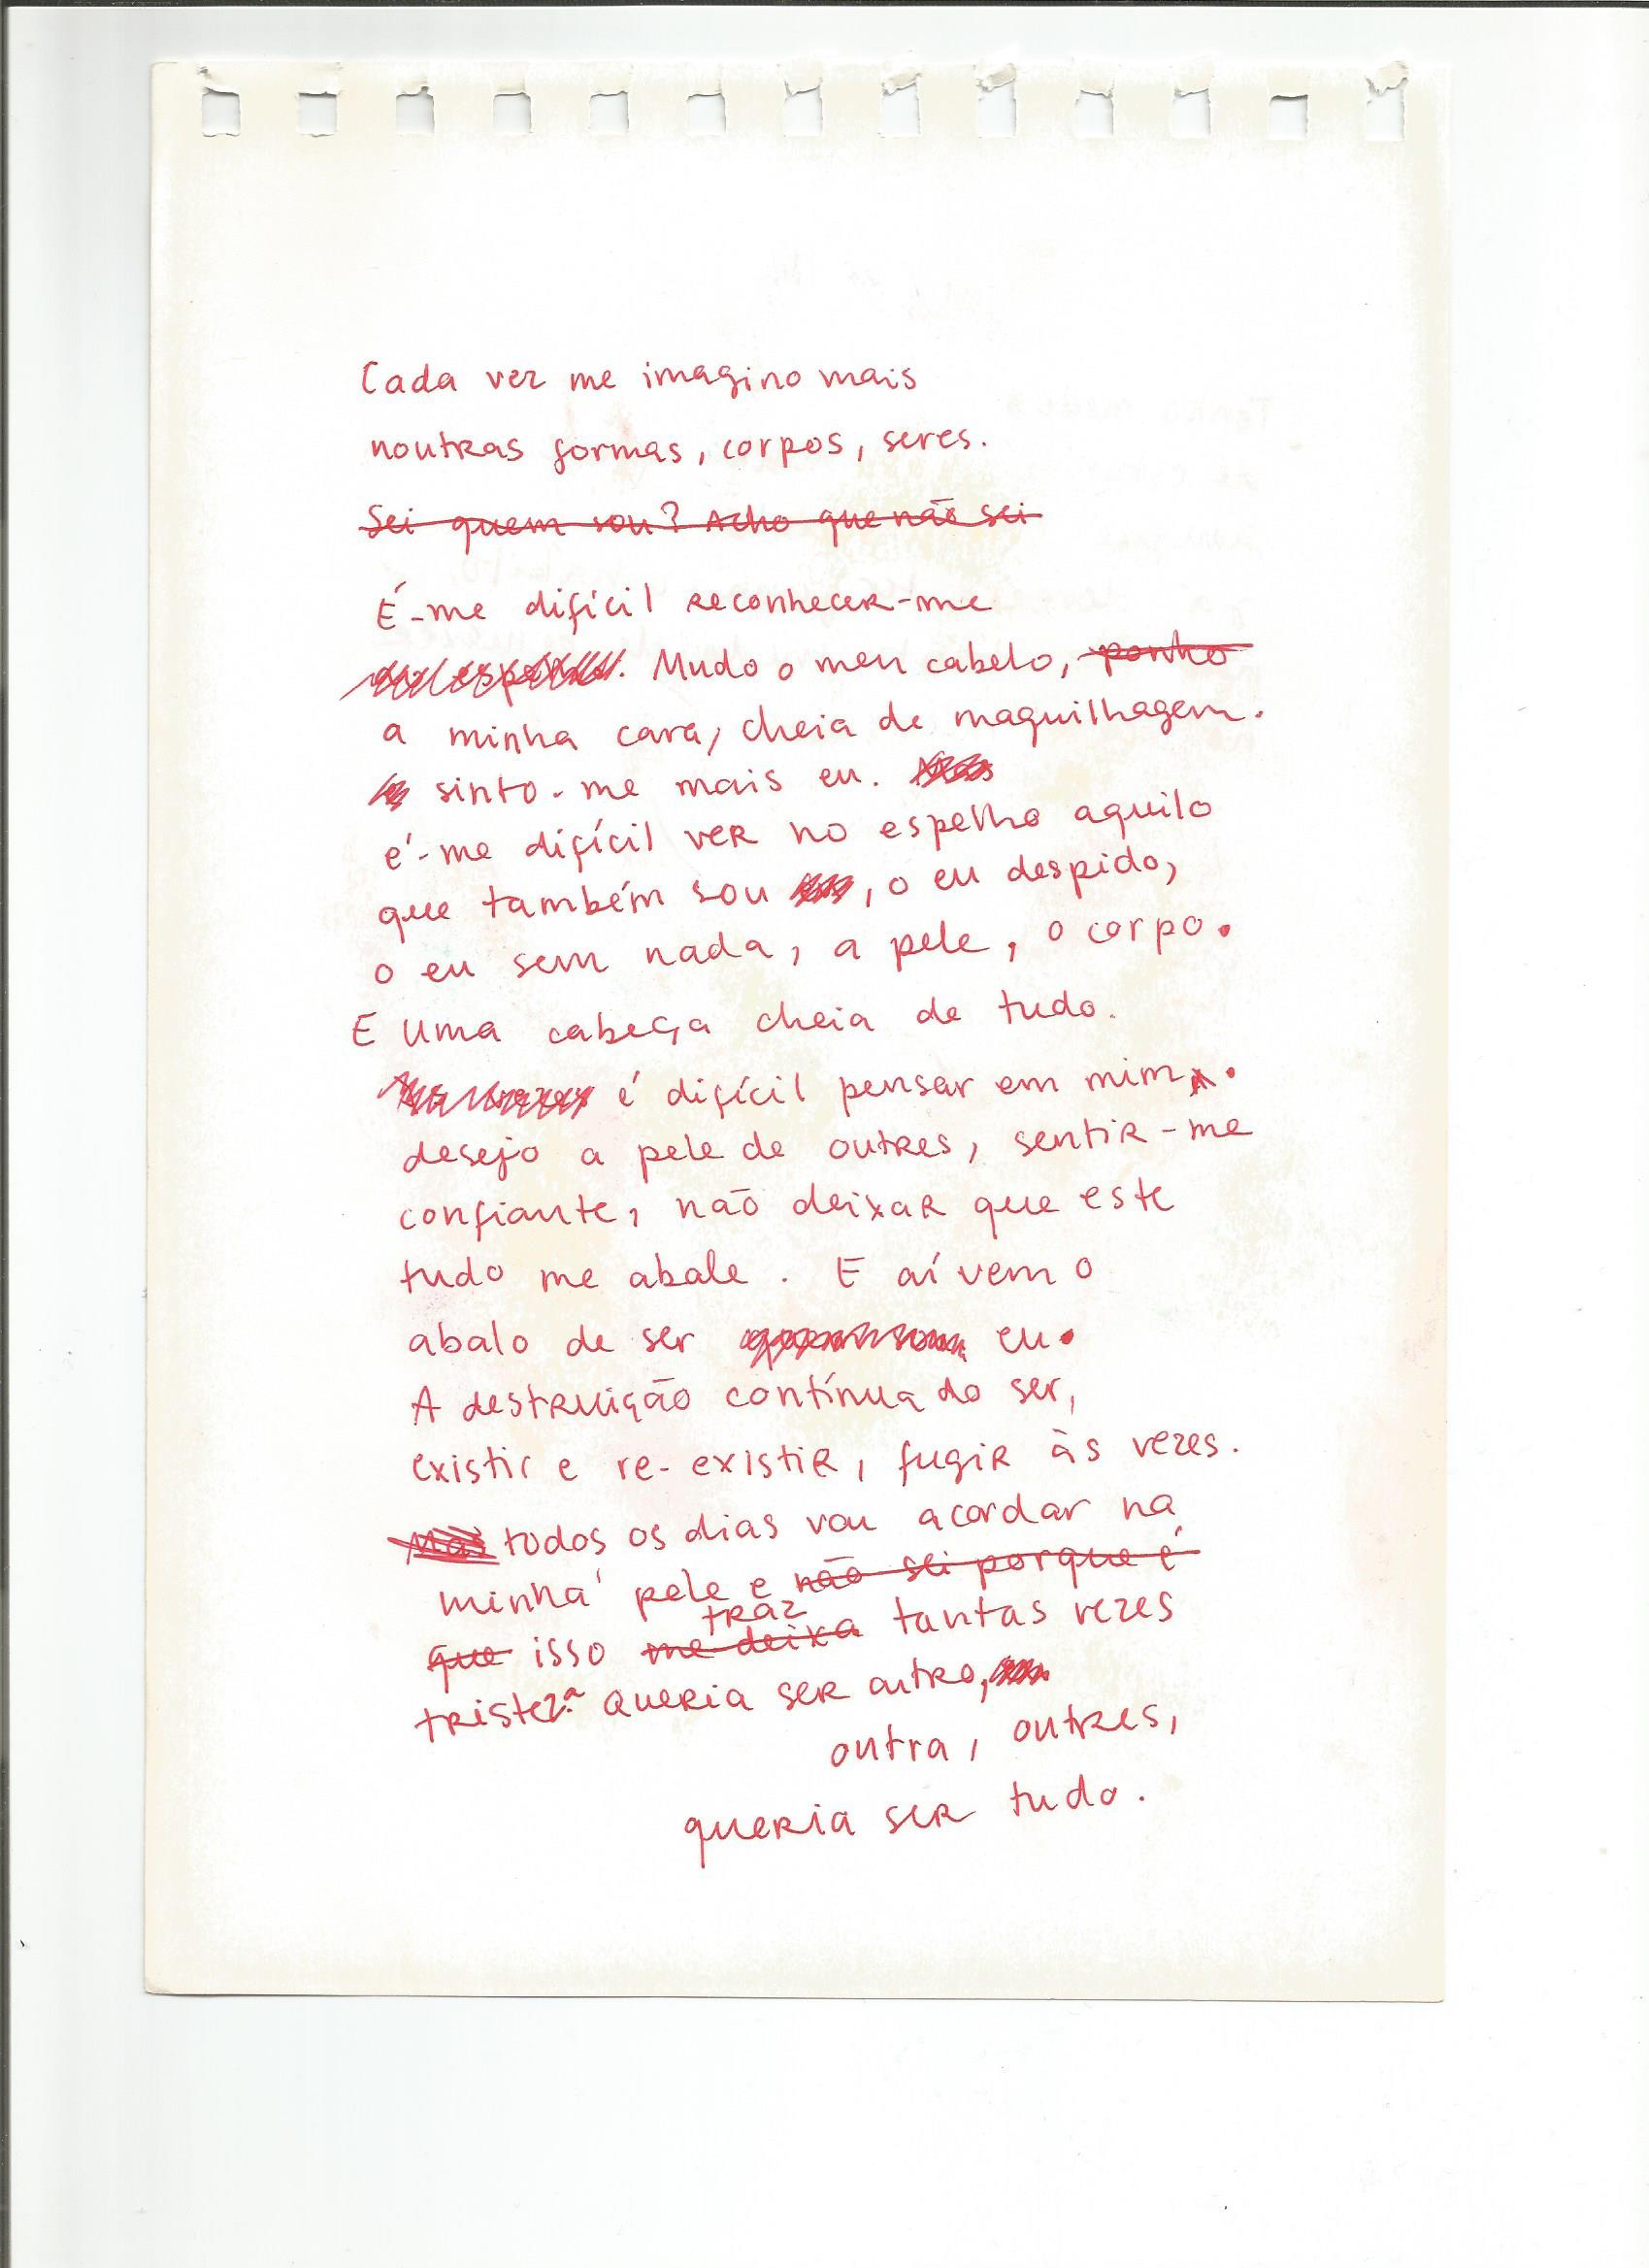 Cada vez me imagino mais
noutras formas, corpos, seres.
Sei quem sou? Acho que não sei
É-me difícil reconhecer-me
. Mudo o meu cabelo, ponho
a minha cara, cheia de maquilhagem.
sinto-me mais eu.
é-me difícil ver no espelho aquilo
que também sou , o eu despido,
o eu sem nada, a pele, o corpo.
E uma cabeça cheia de tudo.
é difícil pensar em mim.
desejo a pele de outres, sentir-me
confiante, não deixar que este
tudo me abale. E aí vem o
abalo de ser eu.
A destruição contínua do ser,
existir e re-existir, fugir às vezes.
Mas todos os dias vou acordar na
minha pele e não sei porque é
traz
que isso me deixa tantas vezes
tristeza. Queria ser outro,
outra, outres,
queria ser tudo.